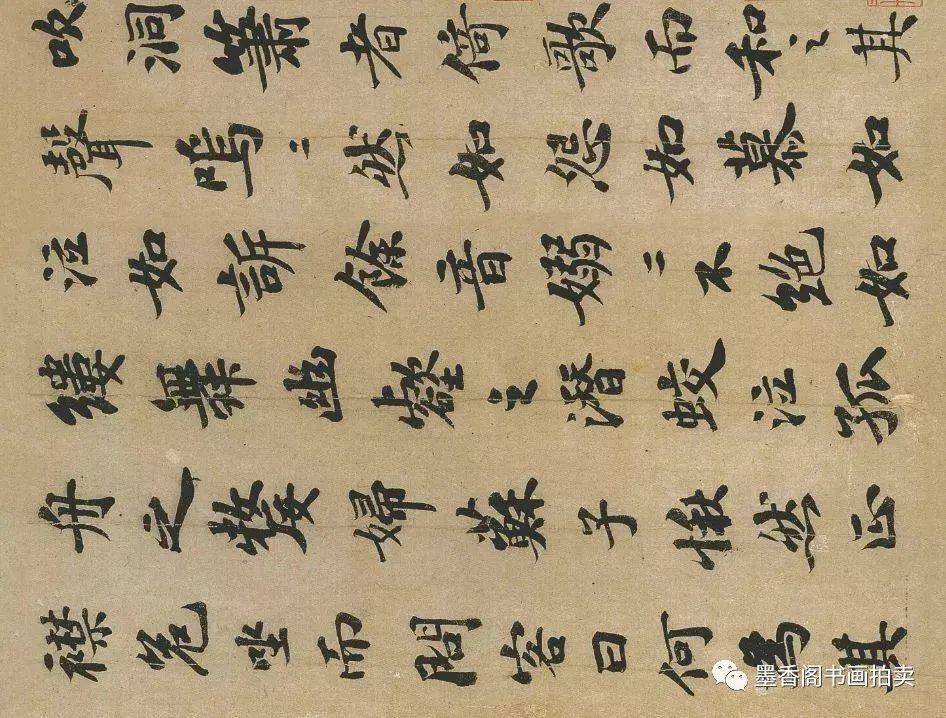 吹洞簫者倚歌而和之其
聲嗚〻然如怨如慕如
泣如訴餘音嫋〻不絕如
縷舞幽壑之潛蛟泣孤
舟之嫠婦蘇子愀然正
襟危坐而問客曰何為其
墨香阁书画拍卖